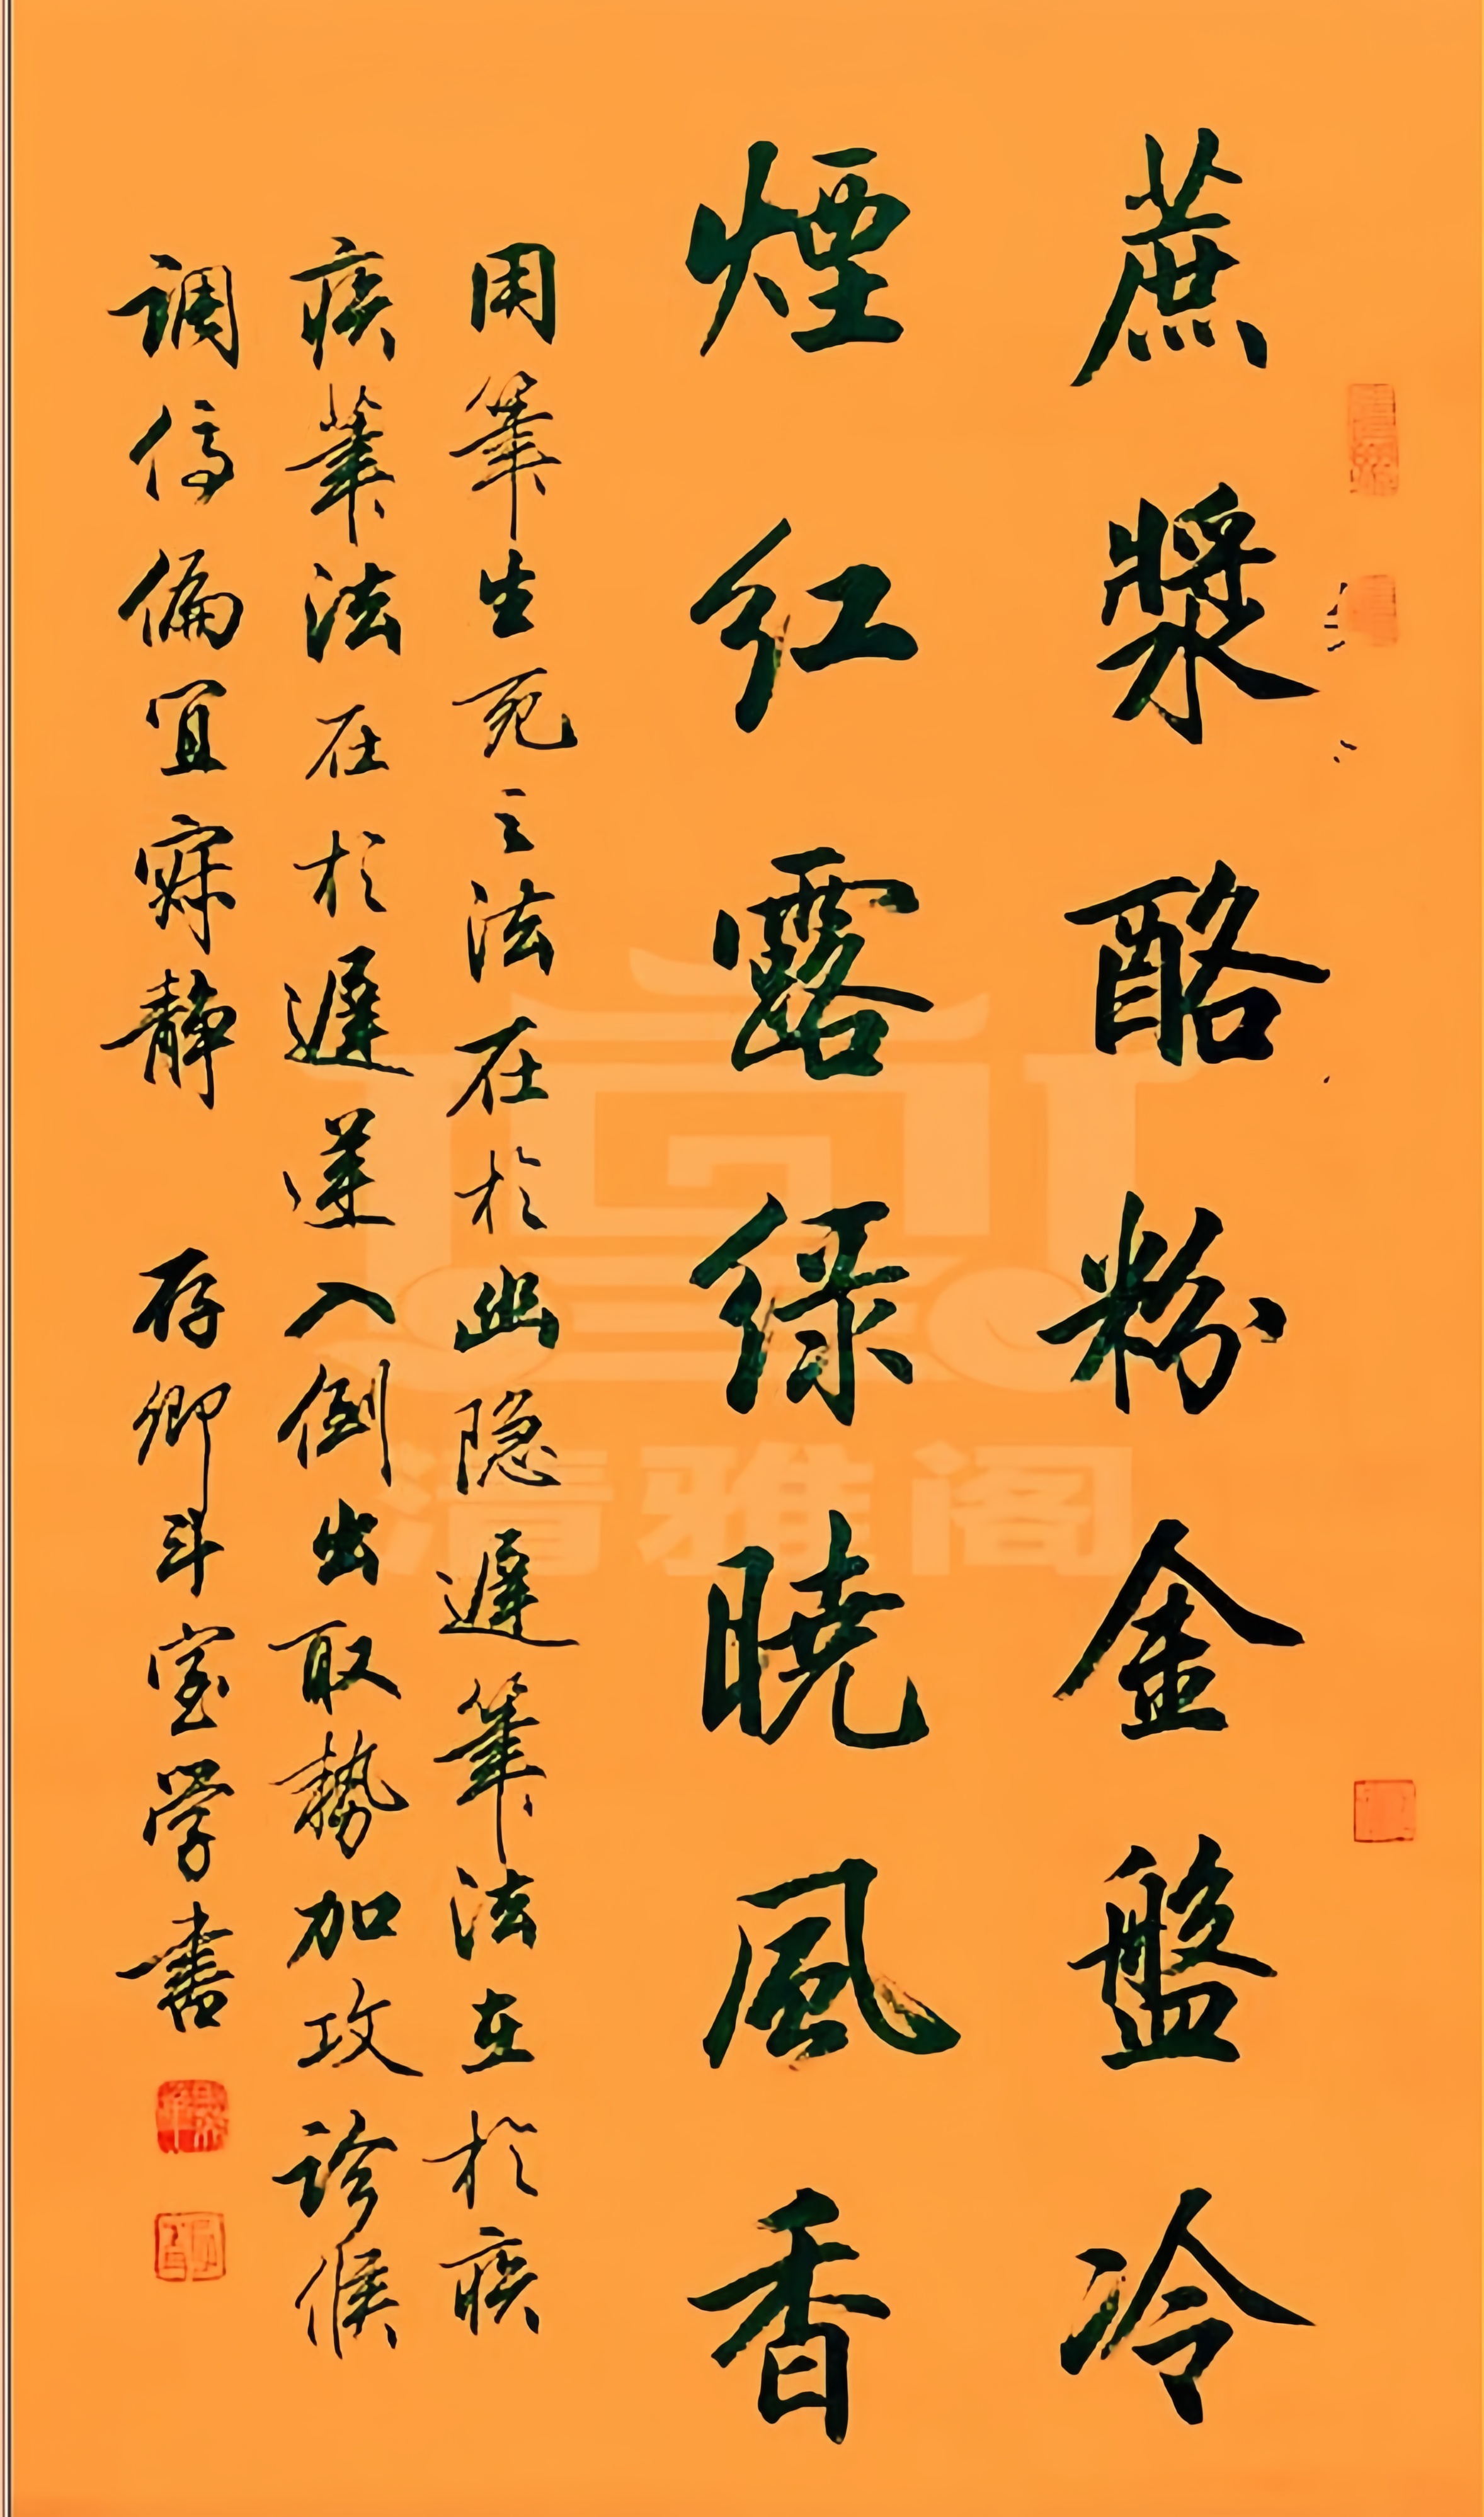 蔗漿酪粉金盤冷
煙紅露緑曉風香
用筆生死之法在於幽隐遲筆法在於疾
疾筆法在於遲逆入倒出取勢加攻診候
调停偏宜寂静 存卿斗室学書
清雅阁